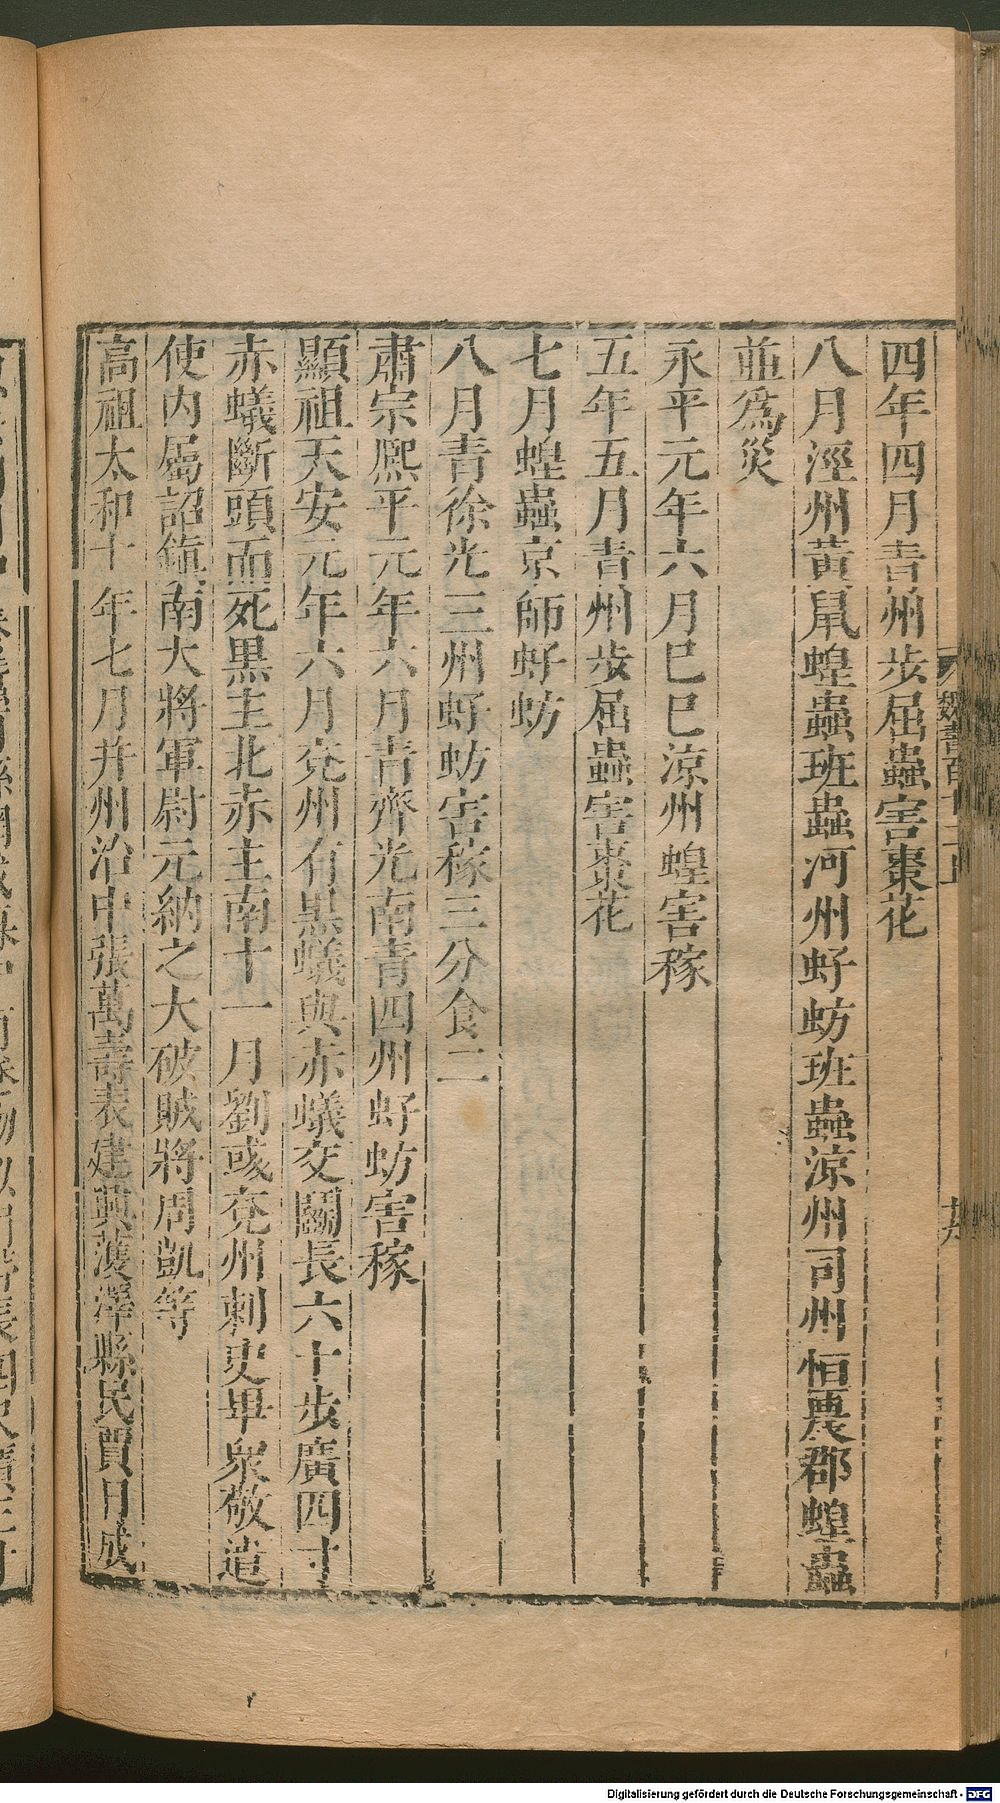 四年四月青州步屈蟲害棗花
八月涇州黃鼠蝗蟲班蟲河州虸蚄班蟲涼州司州恒農郡蝗蟲
並爲災
永平元年六月己巳涼州蝗害稼
五年五月青州步屈蟲害棗花
七月蝗蟲京師虸蚄
八月青徐光三州虸蚄害稼三分食二
肅宗熙平元年六月青齊光南青四州虸蚄害稼
顯祖天安元年六月兗州有黑蟻與赤蟻交鬬長六十步廣四寸
赤蟻斷頭而死黑主北赤主南十一月劉彧兗州刺史畢衆敬遣
使內屬詔鎮南大將軍尉元納之大破賊將周凱等
高祖太和十年七月并州治中張萬壽表建興濩澤縣民賈日成
Digitalisierung gefördert durch die Deutsche Forschungsgemeinschaft - DFG